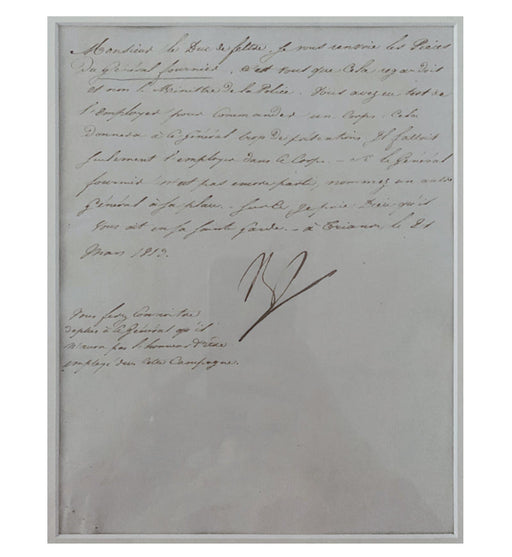 Monsieur le Duc de feltre. Je vous renvoie les Pièces
du Général fournier. C'est vous que cela regardoit
et non le Ministre de la Police. Vous avez eu tort de
l'employer pour Commander un Corps: Cela
donnera à ce Général trop de prétentions. Il falloit
seulement l'employer dans le Corps. - Si le Général
fournier n'est pas encore parti, nommez un autre
Général à sa place. - Sur ce Je prie Dieu qu'il
Vous ait en sa Sainte Garde. - à Trianon le 21
Mars 1813.
Vous ferez Connoitre
depuis à ce Général qu'il
n'aura pas l'honneur d'être
employé dans cette Campagne.